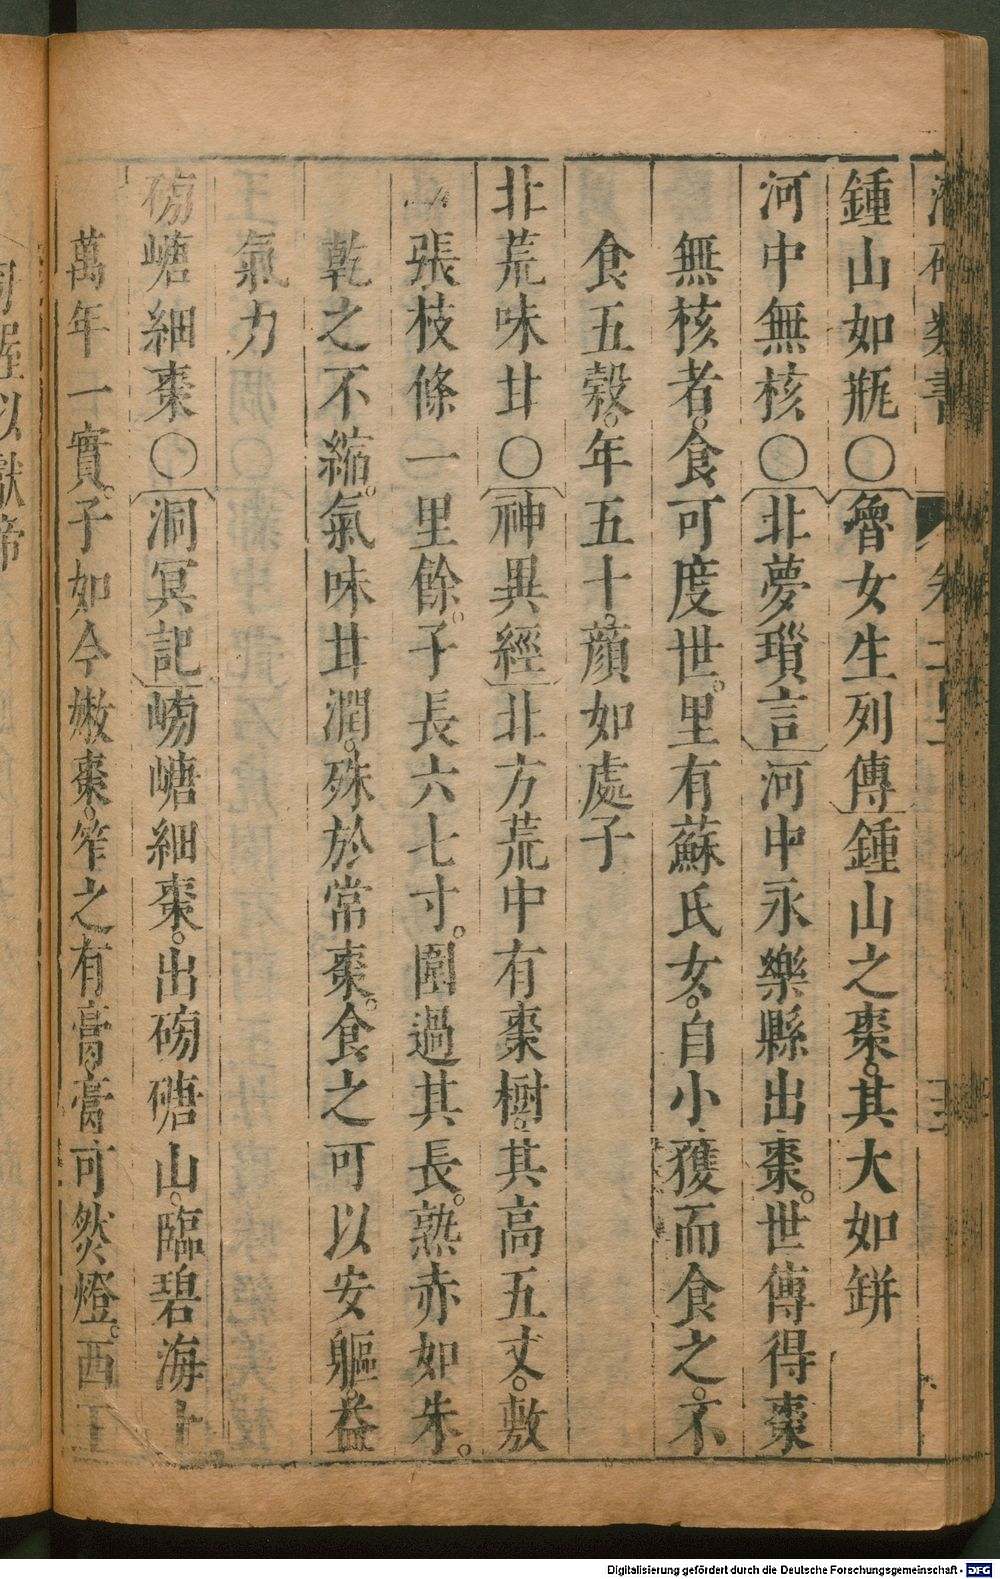 鍾山如瓶○〔魯女生列傳〕鍾山之棗。其大如鉼
河中無核○〔北夢瑣言〕河中永樂縣出棗。世傳得棗
無核者。食可度世。里有蘇氏女。自小獲而食之。不
食五穀。年五十。顔如處子
北荒味甘○〔神異經〕北方荒中有棗樹。其高五丈。敷
張枝條一里餘。子長六七寸。圍過其長。熟赤如朱。
乾之不縮。氣味甘潤。殊於常棗。食之可以安軀。益
氣力
㟐嵣細棗○〔洞冥記〕㟐嵣細棗。出磅磄山。臨碧海上
萬年一實。子如今嫩棗。笮之有膏。膏可然燈。西王
握以獻帝
Digitalisierung gefördert durch die Deutsche Forschungsgemeinschaft - DFG